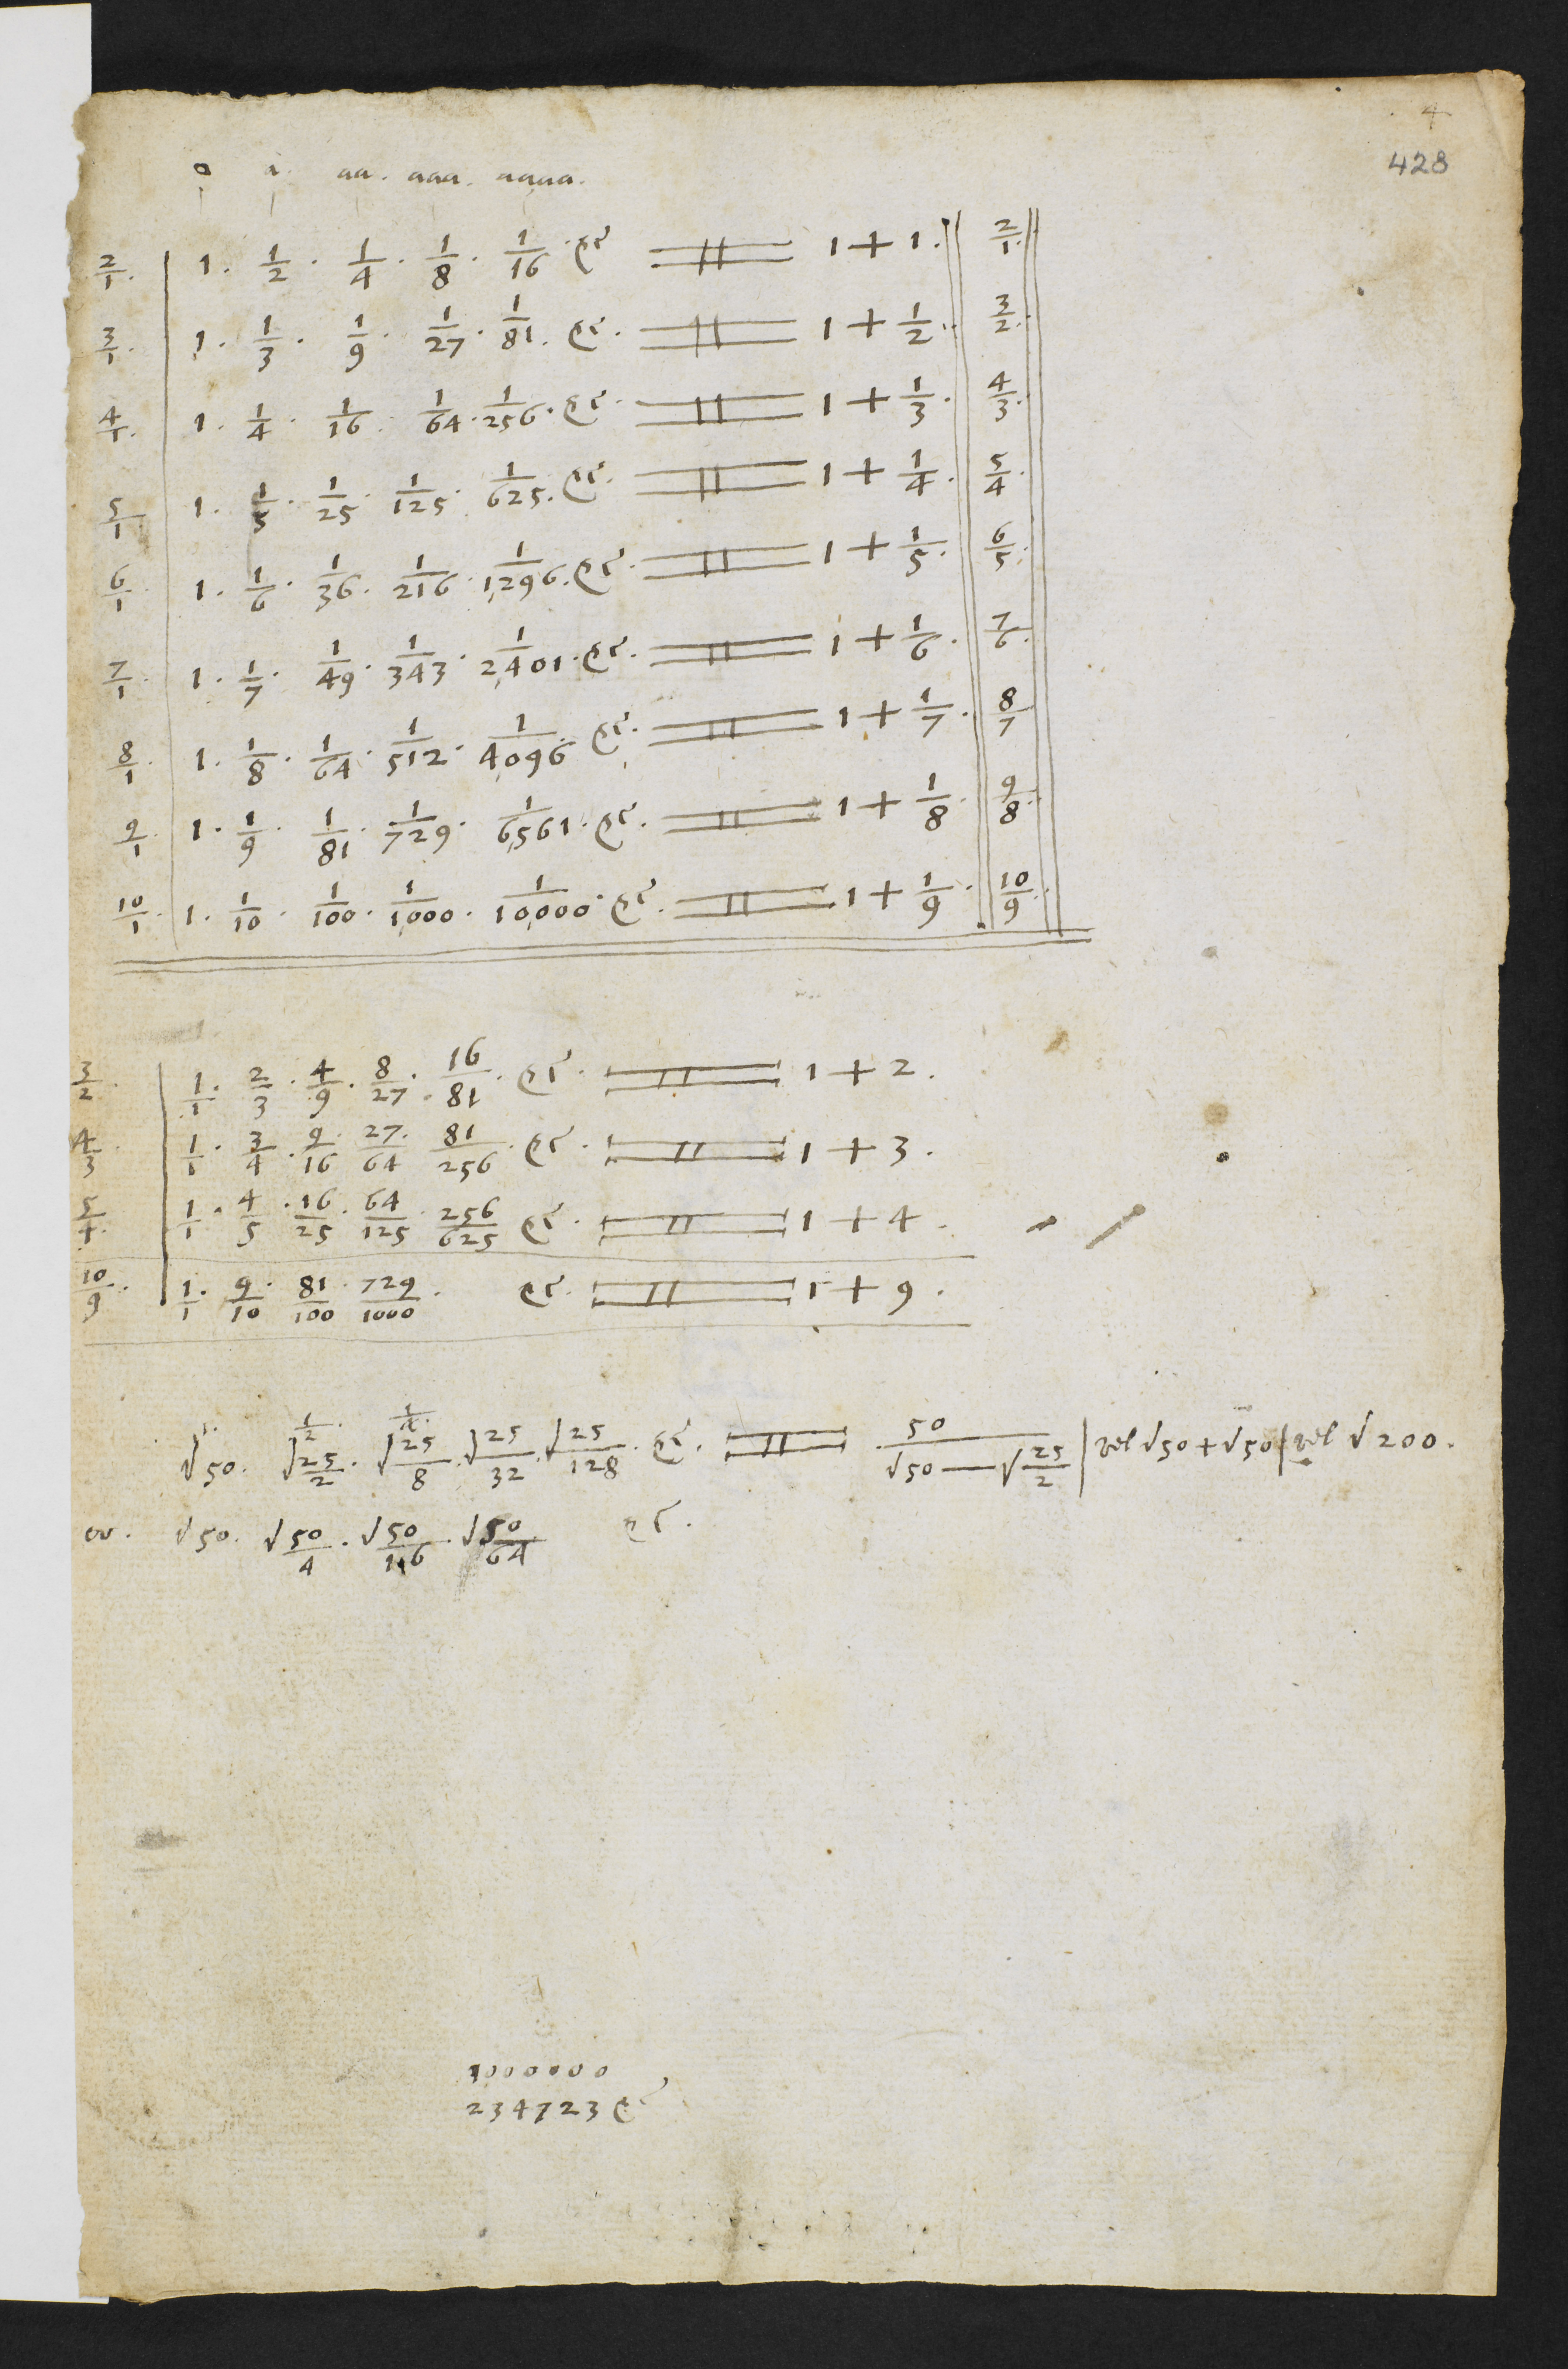 4
428
0 a. aa. aaa. aaaa.
2/1. | 1. 1/2. 1/4. 1/8. 1/16. &c = 1 + 1. || 2/1. ||
3/1. 1. 1/3. 1/9. 1/27. 1/81. &c. = 1 + 1/2. || 3/2.
4/1. 1. 1/4. 1/16. 1/64. 1/256. &c. = 1 + 1/3. || 4/3.
5/1 1. 1/5. 1/25. 1/125. 1/625. &c. = 1 + 1/4. || 5/4.
6/1. 1. 1/6. 1/36. 1/216. 1/1,296. &c. = 1 + 1/5. || 6/5.
7/1. 1. 1/7. 1/49. 1/343. 1/2,401. &c. = 1 + 1/6. || 7/6.
8/1. 1. 1/8. 1/64. 1/512. 1/4,096. &c. = 1 + 1/7. || 8/7
9/1. 1. 1/9. 1/81. 1/729. 1/6,561. &c. = 1 + 1/8. || 9/8.
10/1. 1. 1/10. 1/100. 1/1,000. 1/10,000. &c. = 1 + 1/9. || 10/9.
3/2. | 1/1. 2/3. 4/9. 8/27. 16/81. &c. = 1 + 2.
4/3. 1/1. 3/4. 9/16. 27/64. 81/256. &c. = 1 + 3.
5/4. 1/1. 4/5. 16/25. 64/125. 256/625 &c. = 1 + 4.
10/9. 1/1. 9/10. 81/100. 729/1000. &c. = 1 + 9.
1. 1/2. 1/4.
√50. √25/2. √25/8. √25/32. √25/128. &c. = 50/√50 — √25/2 | vel √50 + √50 | vel √200.
√50. √50/4. √50/16. √50/64 &c.
1000000
234723 &c